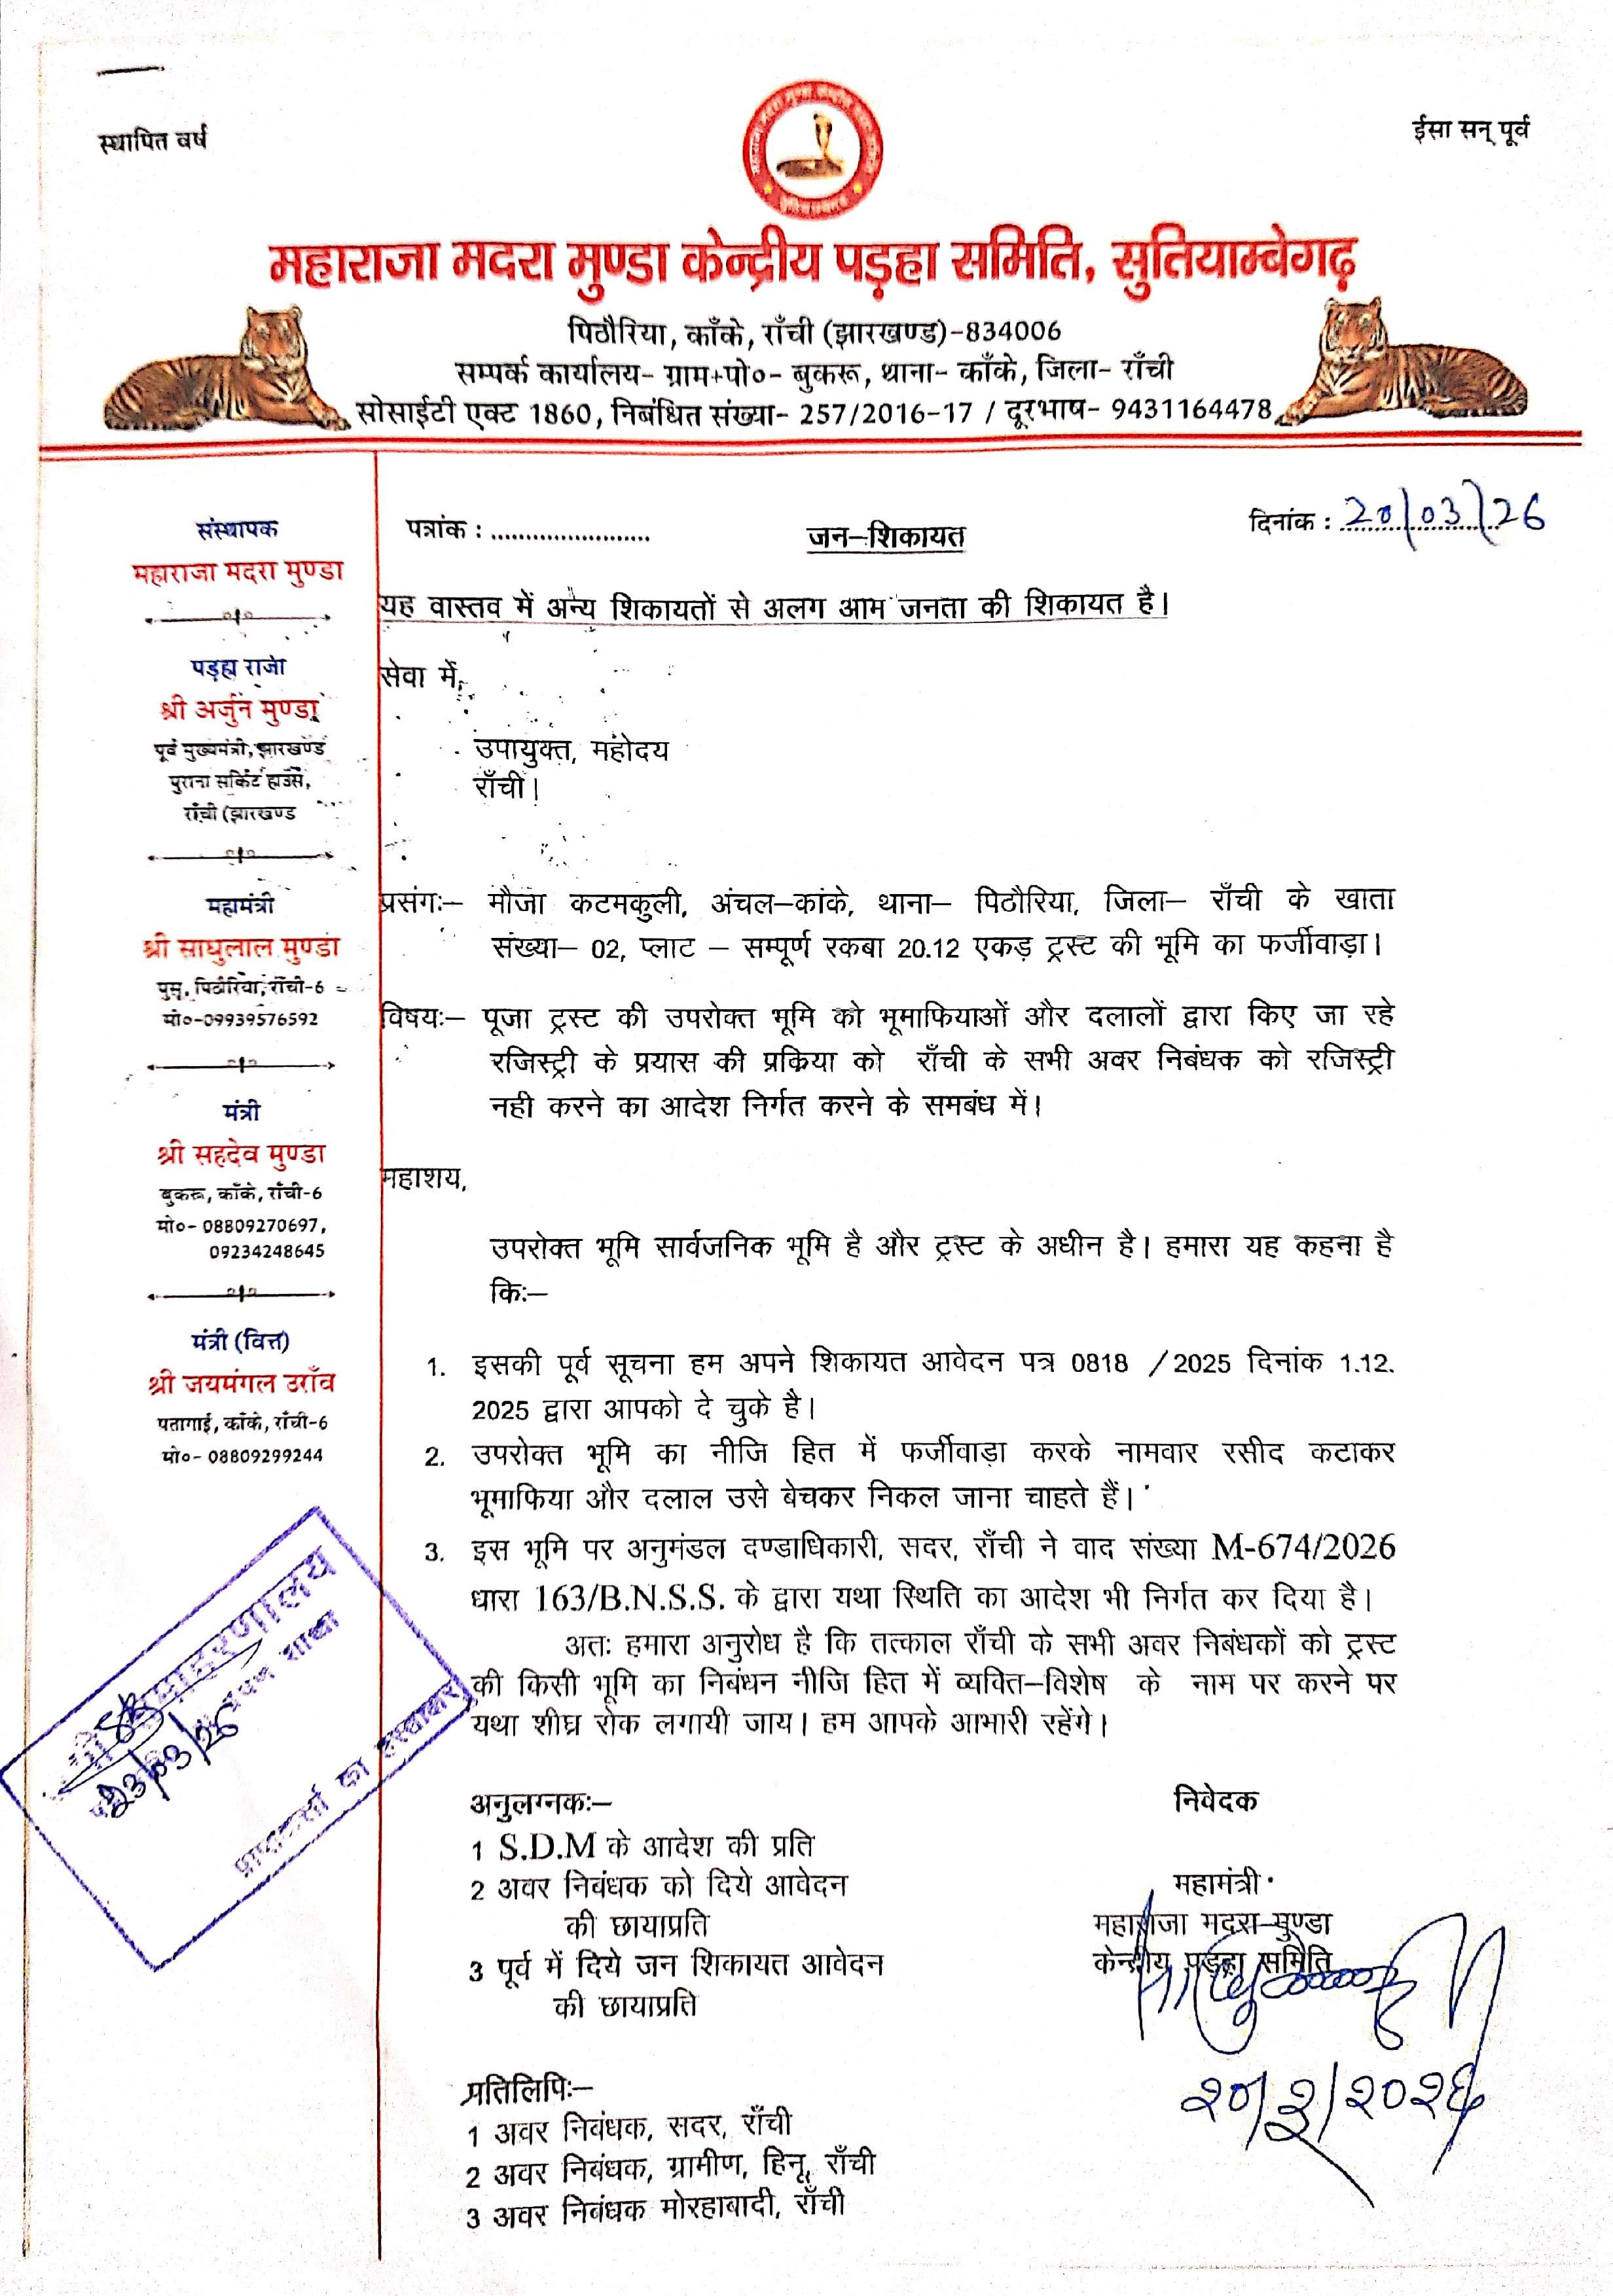 स्थापित वर्ष
ईसा सन् पूर्व
महाराजा मदरा मुण्डा केन्द्रीय पड़हा समिति, सुतियाम्बेगढ़
पिठौरिया, काँके, राँची (झारखण्ड)-834006
सम्पर्क कार्यालय- ग्राम+पो०- बुकरू, थाना- काँके, जिला- राँची
सोसाईटी एक्ट 1860, निबंधित संख्या- 257/2016-17 / दूरभाष- 9431164478
संस्थापक
महाराजा मदरा मुण्डा
पड़हा राजा
श्री अर्जुन मुण्डा
पूर्व मुख्यमंत्री, झारखण्ड
पुराना सर्किट हाउस,
राँची (झारखण्ड
महामंत्री
श्री साधुलाल मुण्डा
पुसू, पिठौरिया, राँची-6
मो०-09939576592
मंत्री
श्री सहदेव मुण्डा
बुकरू, काँके, राँची-6
मो०- 08809270697,
09234248645
मंत्री (वित्त)
श्री जयमंगल उराँव
पतागाई, काँके, राँची-6
मो०- 08809299244
पत्रांक : .......................
दिनांक : 20/03/26
जन–शिकायत
यह वास्तव में अन्य शिकायतों से अलग आम जनता की शिकायत है।
सेवा में,
उपायुक्त, महोदय
राँची।
प्रसंगः– मौजा कटमकुली, अंचल–कांके, थाना– पिठौरिया, जिला– राँची के खाता
संख्या– 02, प्लाट – सम्पूर्ण रकबा 20.12 एकड़ ट्रस्ट की भूमि का फर्जीवाड़ा।
विषयः– पूजा ट्रस्ट की उपरोक्त भूमि को भूमाफियाओं और दलालों द्वारा किए जा रहे
रजिस्ट्री के प्रयास की प्रकिया को राँची के सभी अवर निबंधक को रजिस्ट्री
नही करने का आदेश निर्गत करने के समबंध में।
महाशय,
उपरोक्त भूमि सार्वजनिक भूमि है और ट्रस्ट के अधीन है। हमारा यह कहना है
किः–
1. इसकी पूर्व सूचना हम अपने शिकायत आवेदन पत्र 0818 /2025 दिनांक 1.12.
2025 द्वारा आपको दे चुके है।
2. उपरोक्त भूमि का नीजि हित में फर्जीवाड़ा करके नामवार रसीद कटाकर
भूमाफिया और दलाल उसे बेचकर निकल जाना चाहते हैं।
3. इस भूमि पर अनुमंडल दण्डाधिकारी, सदर, राँची ने वाद संख्या M-674/2026
धारा 163/B.N.S.S. के द्वारा यथा स्थिति का आदेश भी निर्गत कर दिया है।
अतः हमारा अनुरोध है कि तत्काल राँची के सभी अवर निबंधकों को ट्रस्ट
की किसी भूमि का निबंधन नीजि हित में व्यक्ति–विशेष के नाम पर करने पर
यथा शीघ्र रोक लगायी जाय। हम आपके आभारी रहेंगे।
समाहरणालय
शाखा
23/03/26
प्राप्तकर्ता का हस्ताक्षर
अनुलग्नकः–
1 S.D.M के आदेश की प्रति
2 अवर निबंधक को दिये आवेदन
की छायाप्रति
3 पूर्व में दिये जन शिकायत आवेदन
की छायाप्रति
निवेदक
महामंत्री
महाराजा मदरा मुण्डा
केन्द्रीय पड़हा समिति
२०/३/२०२६
प्रतिलिपिः–
1 अवर निबंधक, सदर, राँची
2 अवर निबंधक, ग्रामीण, हिनू, राँची
3 अवर निबंधक मोरहाबादी, राँची